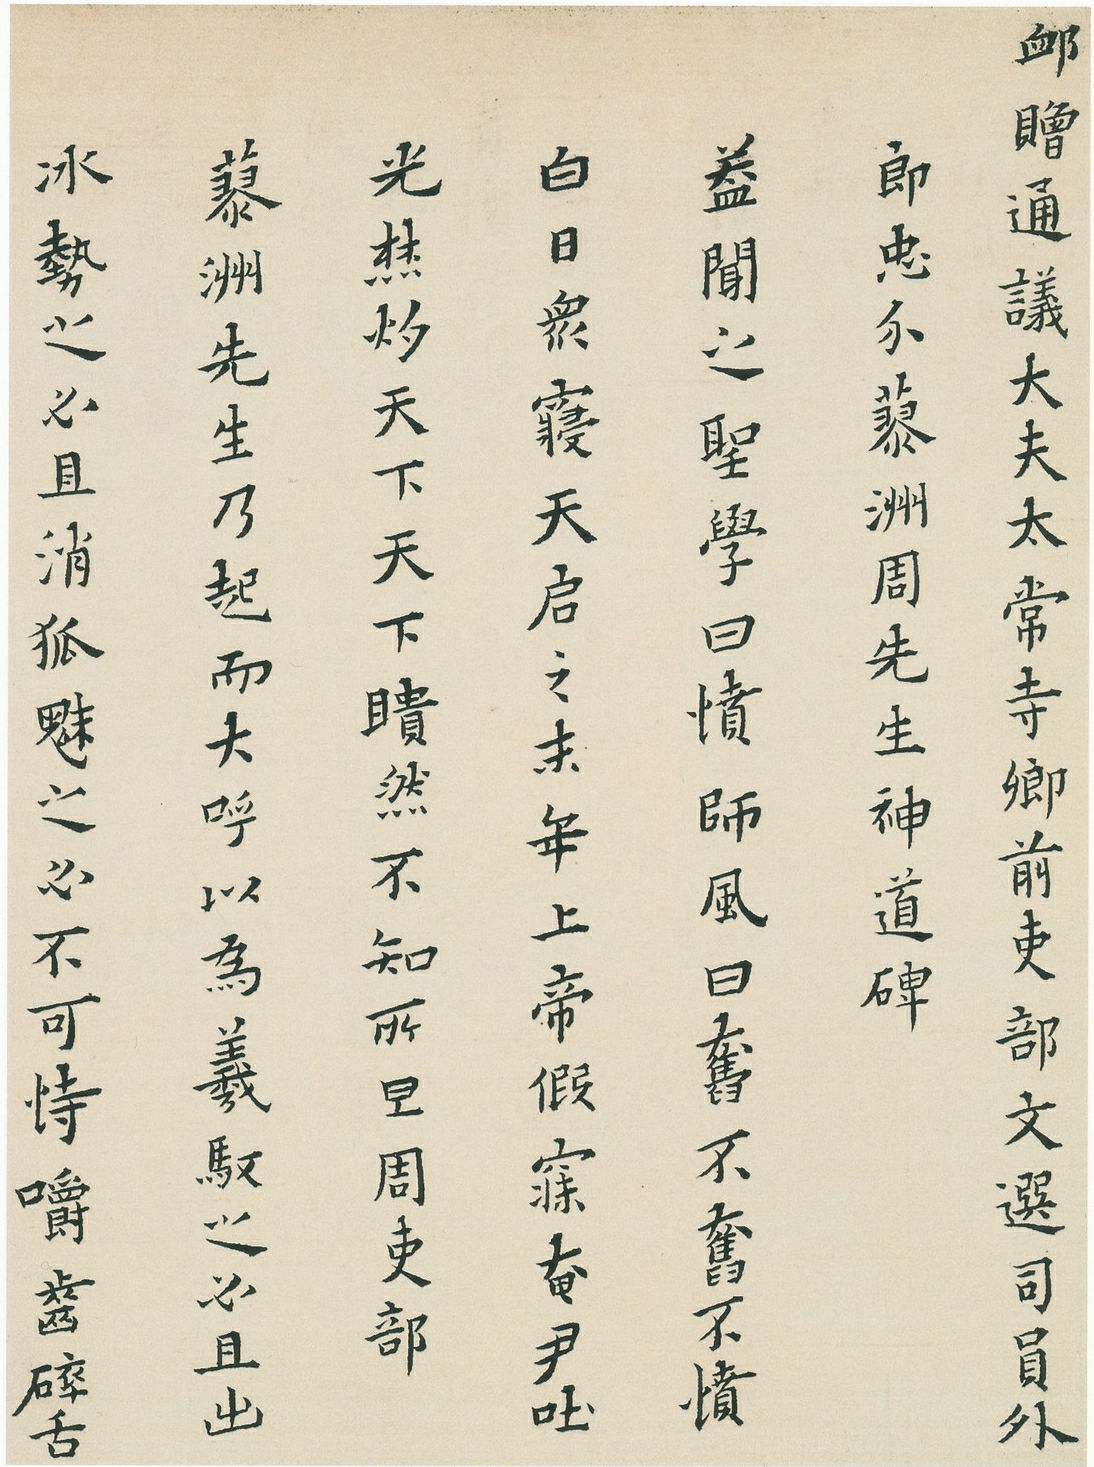 卹贈通議大夫太常寺卿前吏部文選司員外
郎忠介蓼洲周先生神道碑
蓋聞之聖學曰憤師風曰奮不奮不憤
白日衆寢天启之末年上帝假寐奄尹吐
光焚灼天下天下瞶然不知所㠯周吏部
蓼洲先生乃起而大呼以為羲馭之必且出
冰勢之必且消狐魅之必不可恃嚼齒碎舌